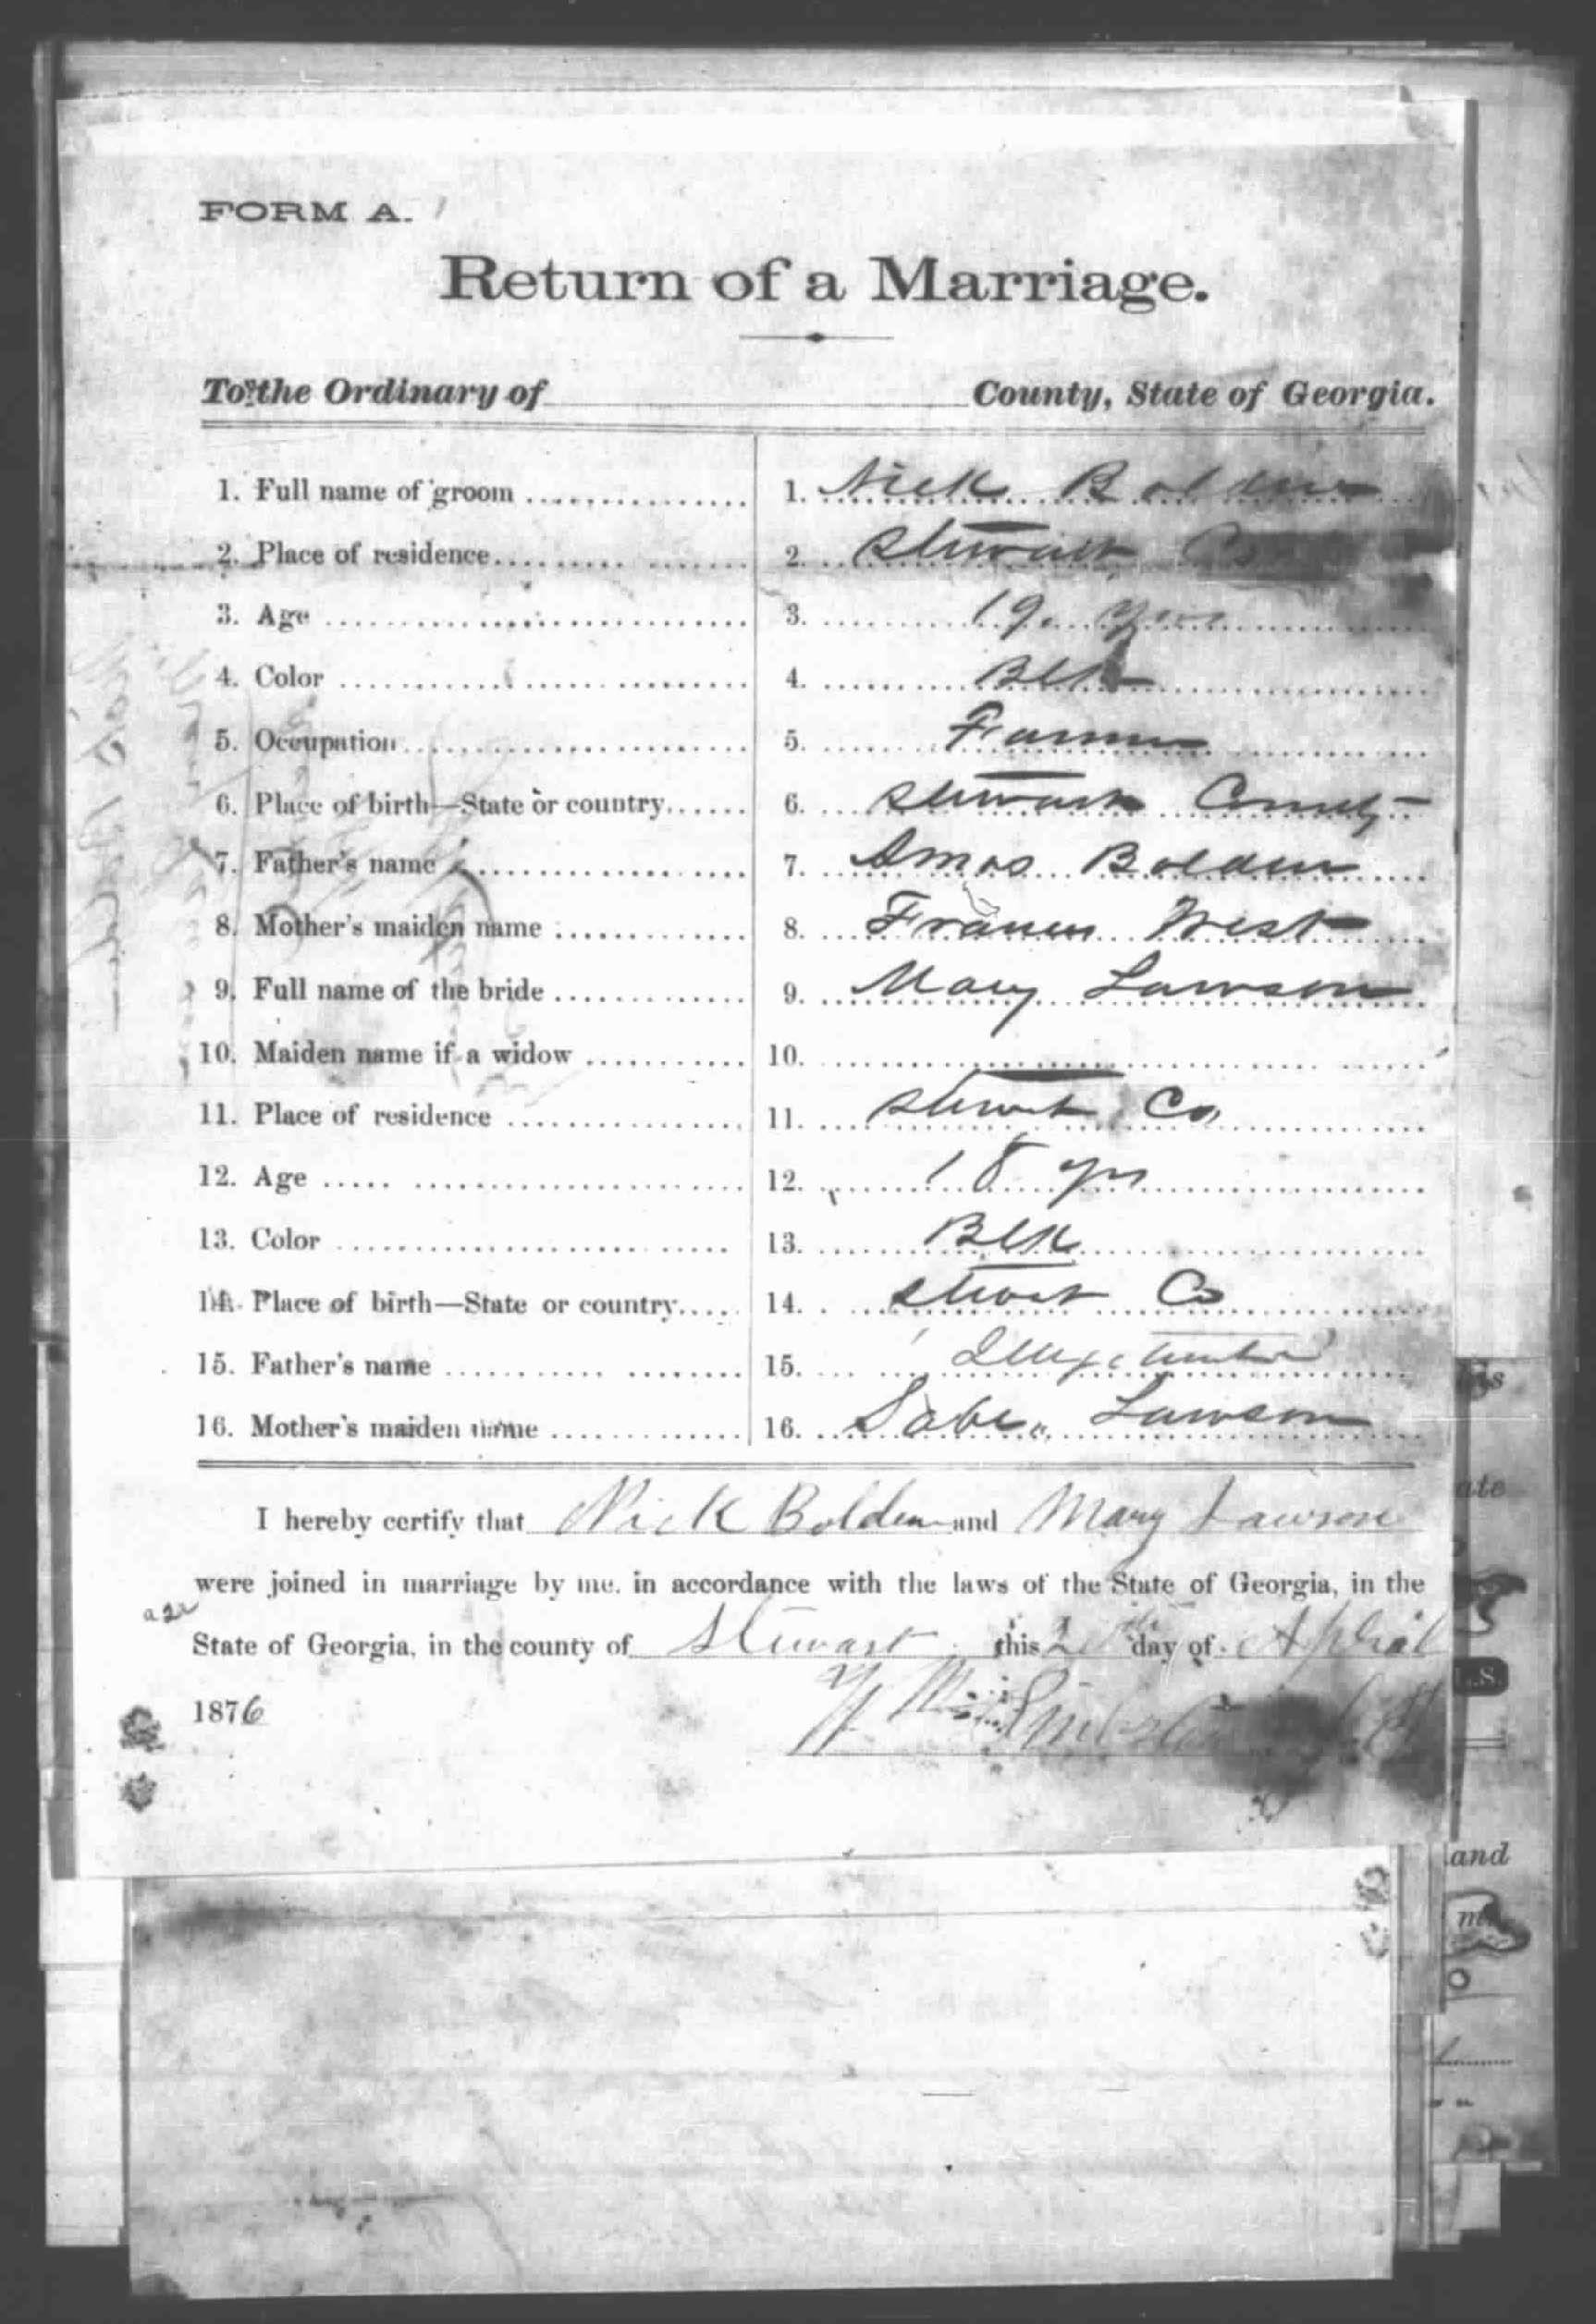 FORM A.
Return of a Marriage.
To the Ordinary of County, State of Georgia.
1. Full name of groom 1. Nick Bolden
2. Place of residence 2. Stewart Co
3. Age 3. 19 yrs
4. Color 4. Blk
5. Occupation 5. Farmer
6. Place of birth—State or country 6. Stewart County
7. Father's name 7. Amos Bolden
8. Mother's maiden name 8. Frances West
9. Full name of the bride 9. Mary Lawson
10. Maiden name if a widow 10.
11. Place of residence 11. Stewart Co
12. Age 12. 18 yrs
13. Color 13. Blk
14. Place of birth—State or country 14. Stewart Co
15. Father's name 15.
16. Mother's maiden name 16. Lawson
I hereby certify that Nick Bolden and Mary Lawson
were joined in marriage by me, in accordance with the laws of the State of Georgia, in the
State of Georgia, in the county of Stewart this day of Aphial
1876